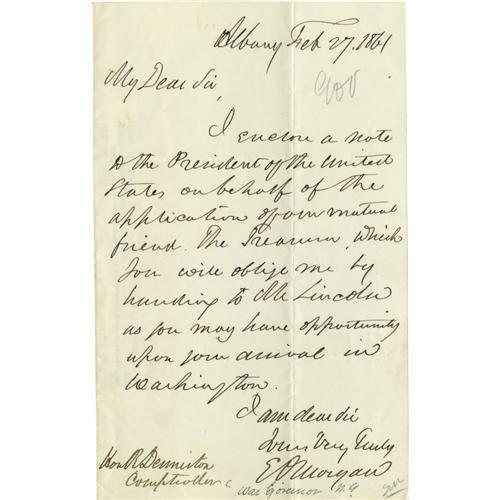 Albany Feb 27. 1861
Gov
My Dear Sir,
I enclose a note
to the President of the United
States on behalf of the
application of our mutual
friend. The Treasurer, which
you will oblige me by
handing to Mr Lincoln
as you may have opportunity
upon your arrival in
Washington.
I am dear sir
Yours Very Truly
E D Morgan
Hon R Denniston
Comptroller &c
War Governor N.Y.